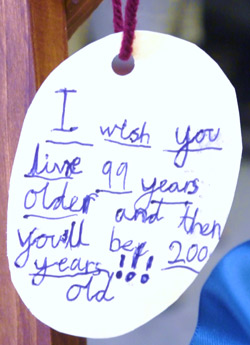 I wish you
live 99 years
older and then
you'll be 200
years!!!
old